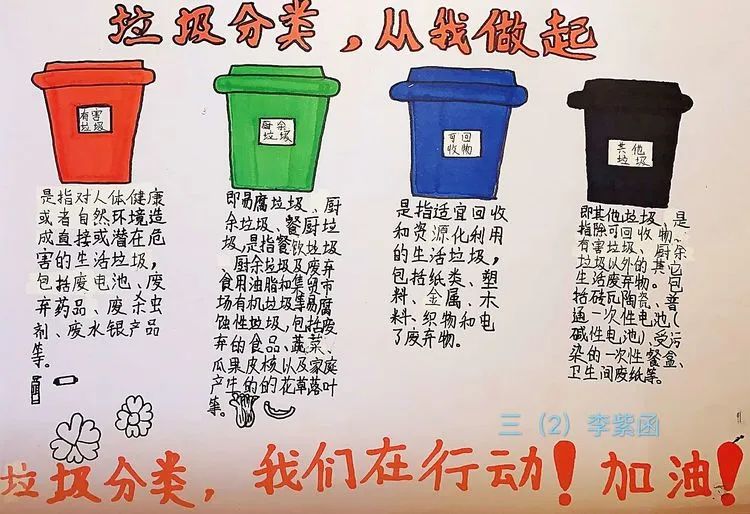 垃圾分类，从我做起
有害
垃圾
是指对人体健康
或者自然环境造
成直接或潜在危
害的生活垃圾，
包括废电池、废
弃药品、废杀虫
剂、废水银产品
等。
厨余
垃圾
即易腐垃圾、厨
余垃圾、餐厨垃
圾,是指餐饮垃圾
、厨余垃圾及废弃
食用油脂和集贸市
场有机垃圾等易腐
蚀性垃圾,包括废
弃的食品、蔬菜、
瓜果皮核以及家庭
产生的的花草落叶
等。
可回
收物
是指适宜回收
和资源化利用
的生活垃圾，
包括纸类、塑
料、金属、木
料、织物和电
了废弃物。
其他
垃圾
即其他垃圾，是
指除可回收物、
有害垃圾、厨余
垃圾以外的其它
生活废弃物。包
括砖瓦陶瓷、普
通一次性电池(
碱性电池)、受污
染的一次性餐盒、
卫生间废纸等。
三（2）李紫函
垃圾分类，我们在行动！加油！